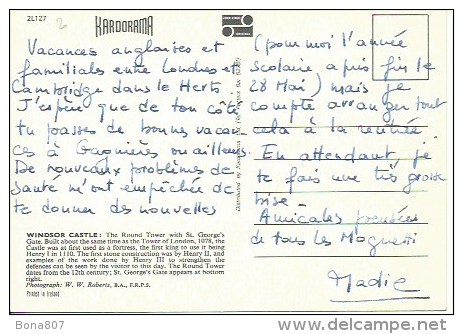 2L127
2
KARDORAMA
Vacances anglaises et
familiales entre Londres et
Cambridge dans le Herts
J'espère que de ton côté
tu passes de bonnes vacan-
ces à Gagnières ou ailleurs.
De nouveaux problèmes de
santé m'ont empêchée de
te donner des nouvelles
(pour moi l'année
scolaire a pris fin le
28 Mai) mais je
compte arranger tout
cela à la rentrée.
En attendant je
te fais une très grosse
bise.
Amicales pensées
de tous les
Nadie
WINDSOR CASTLE: The Round Tower with St. George's
Gate. Built about the same time as the Tower of London, 1078, the
Castle was at first used as a fortress, the first king to use it being
Henry I in 1110. The first stone construction was by Henry II, and
examples of the work done by Henry III to strengthen the
defences can be seen by the visitor to this day. The Round Tower
dates from the 12th century; St. George's Gate appears at bottom
right.
Photograph: W. W. Roberts, B.A., F.R.P.S.
Printed in Ireland
Bona807
delcampe.net